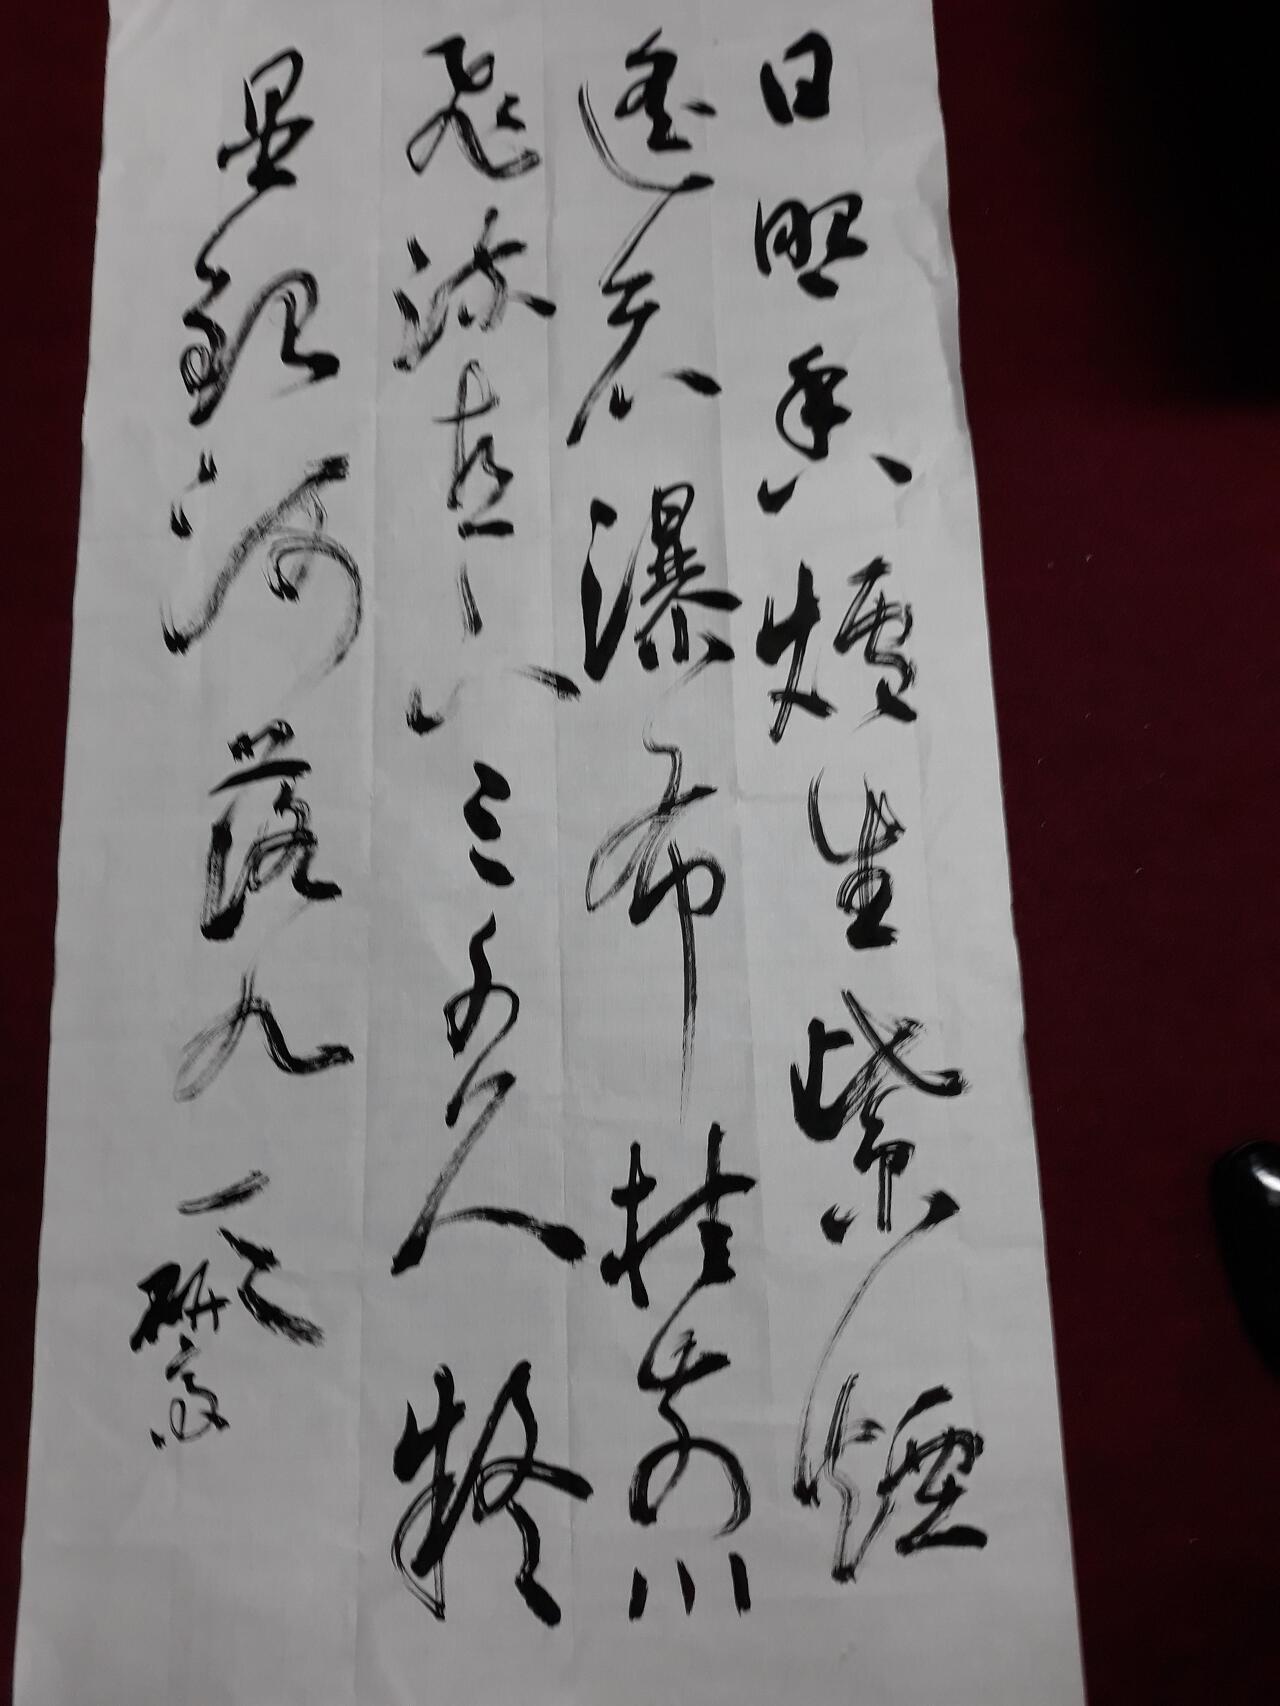 日照香爐生紫煙
遙看瀑布挂前川
飛流直下三千尺疑
是銀河落九天